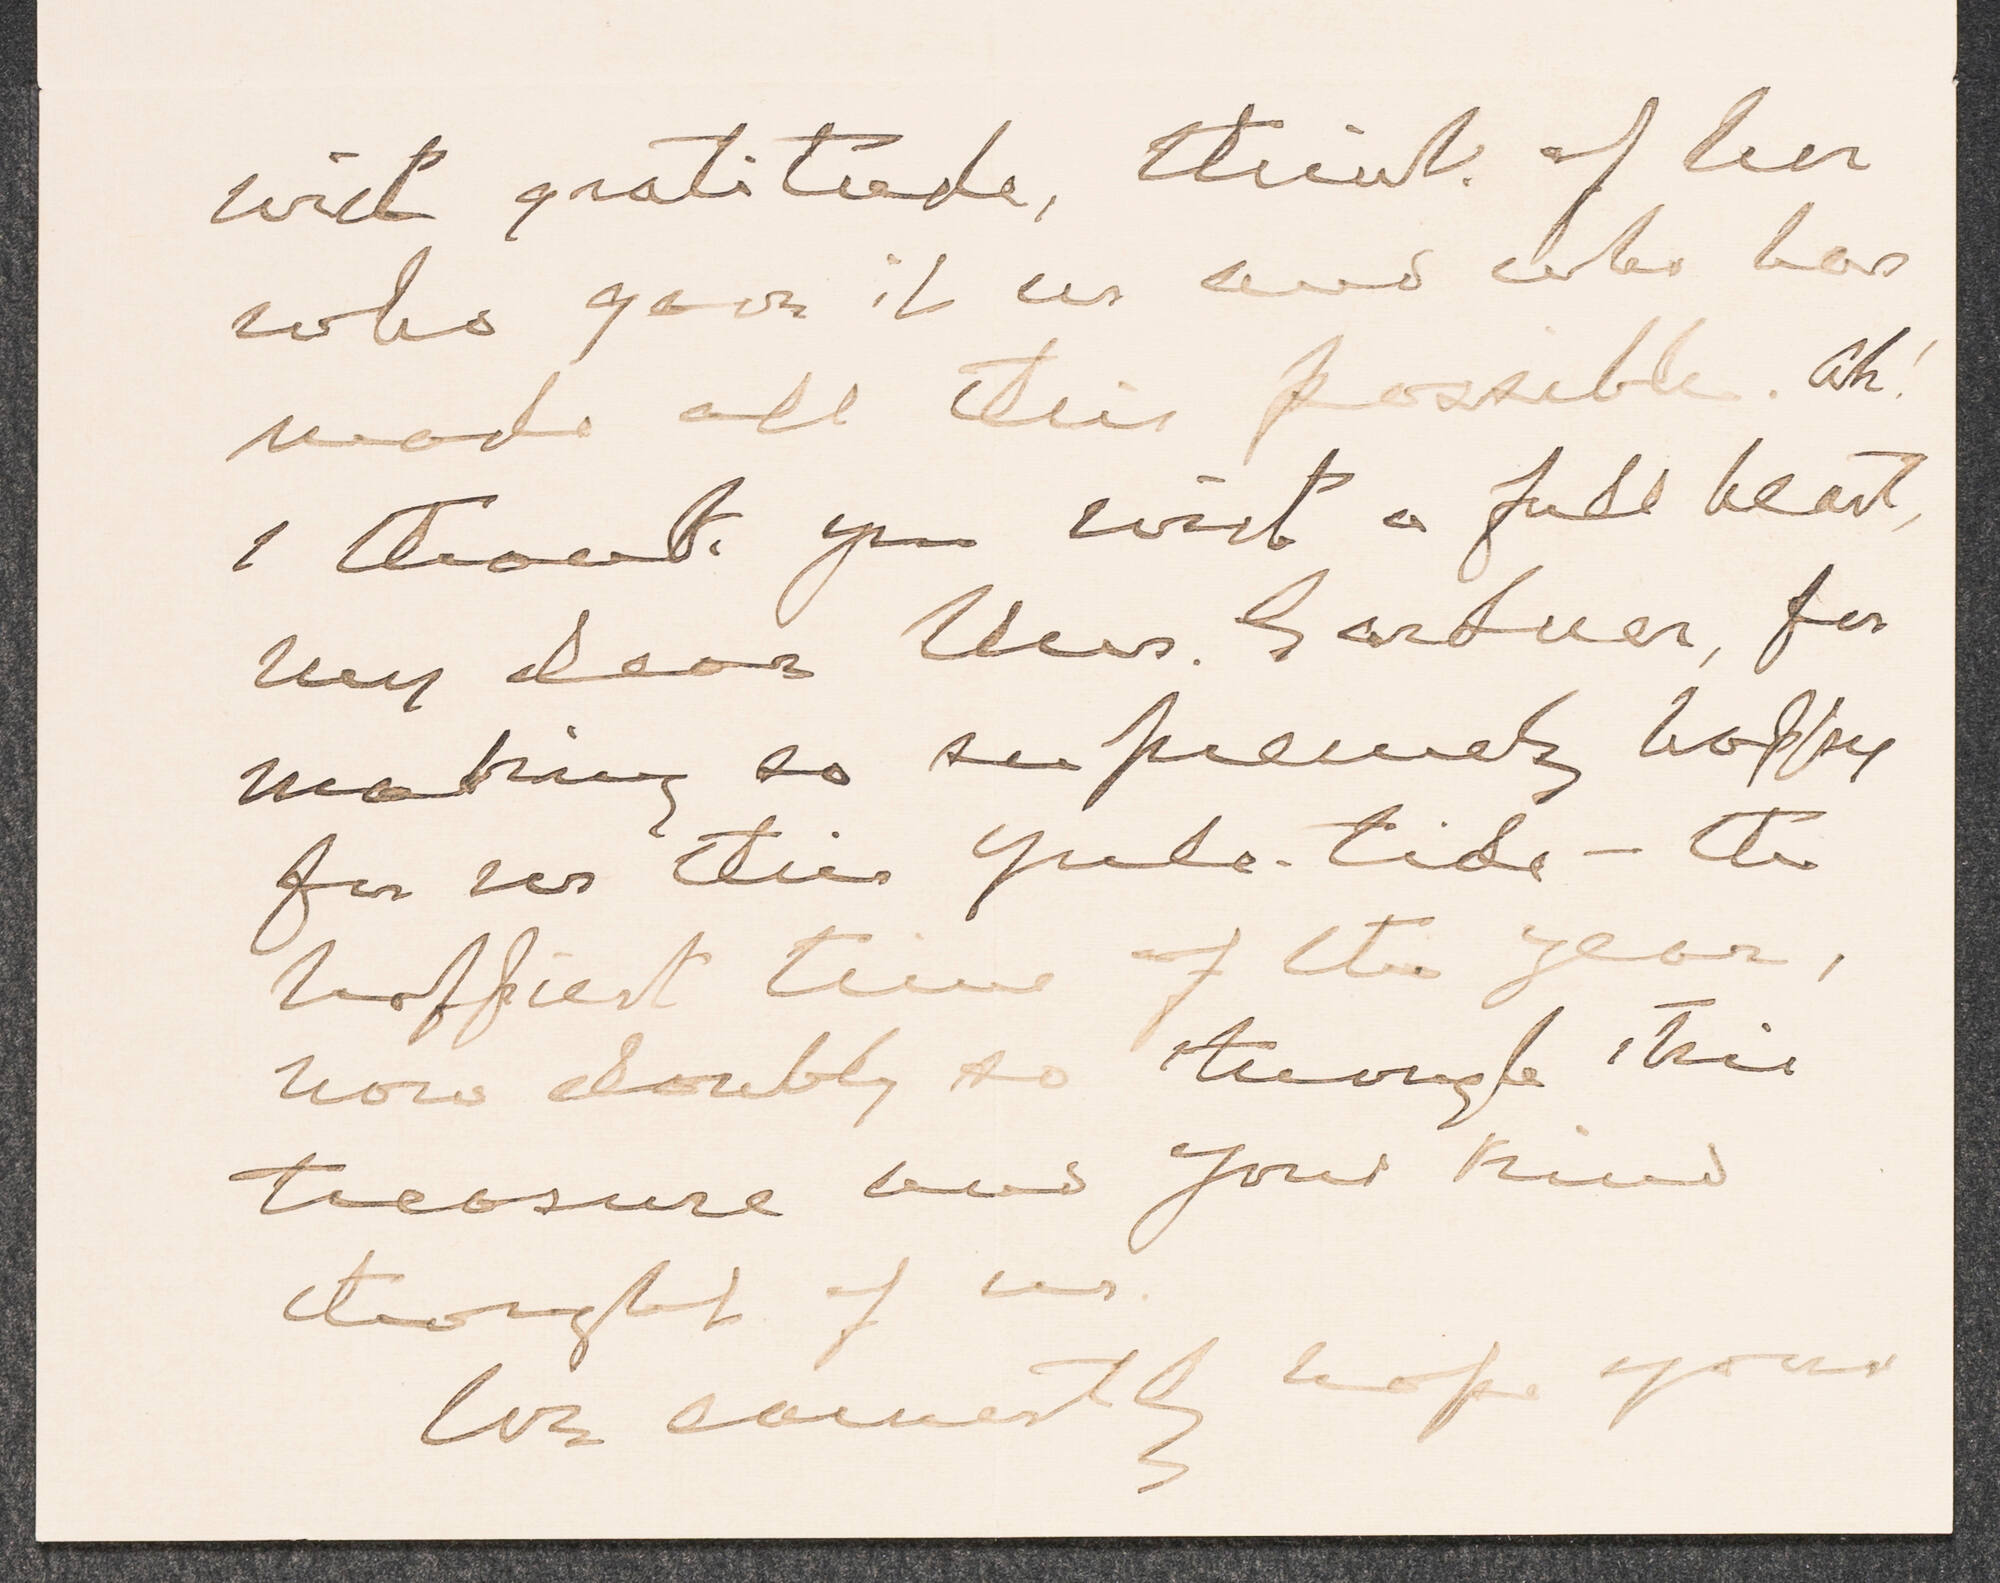 with gratitude, think of her
who gave it us and who has
made all this possible. Ah!
I thank you with a full heart,
my dear Mrs. Gardner, for
making so supremely happy
for us this Yule-tide – the
happiest time of the year,
now doubly so through this
treasure and your kind
thought of us.
We earnestly hope your